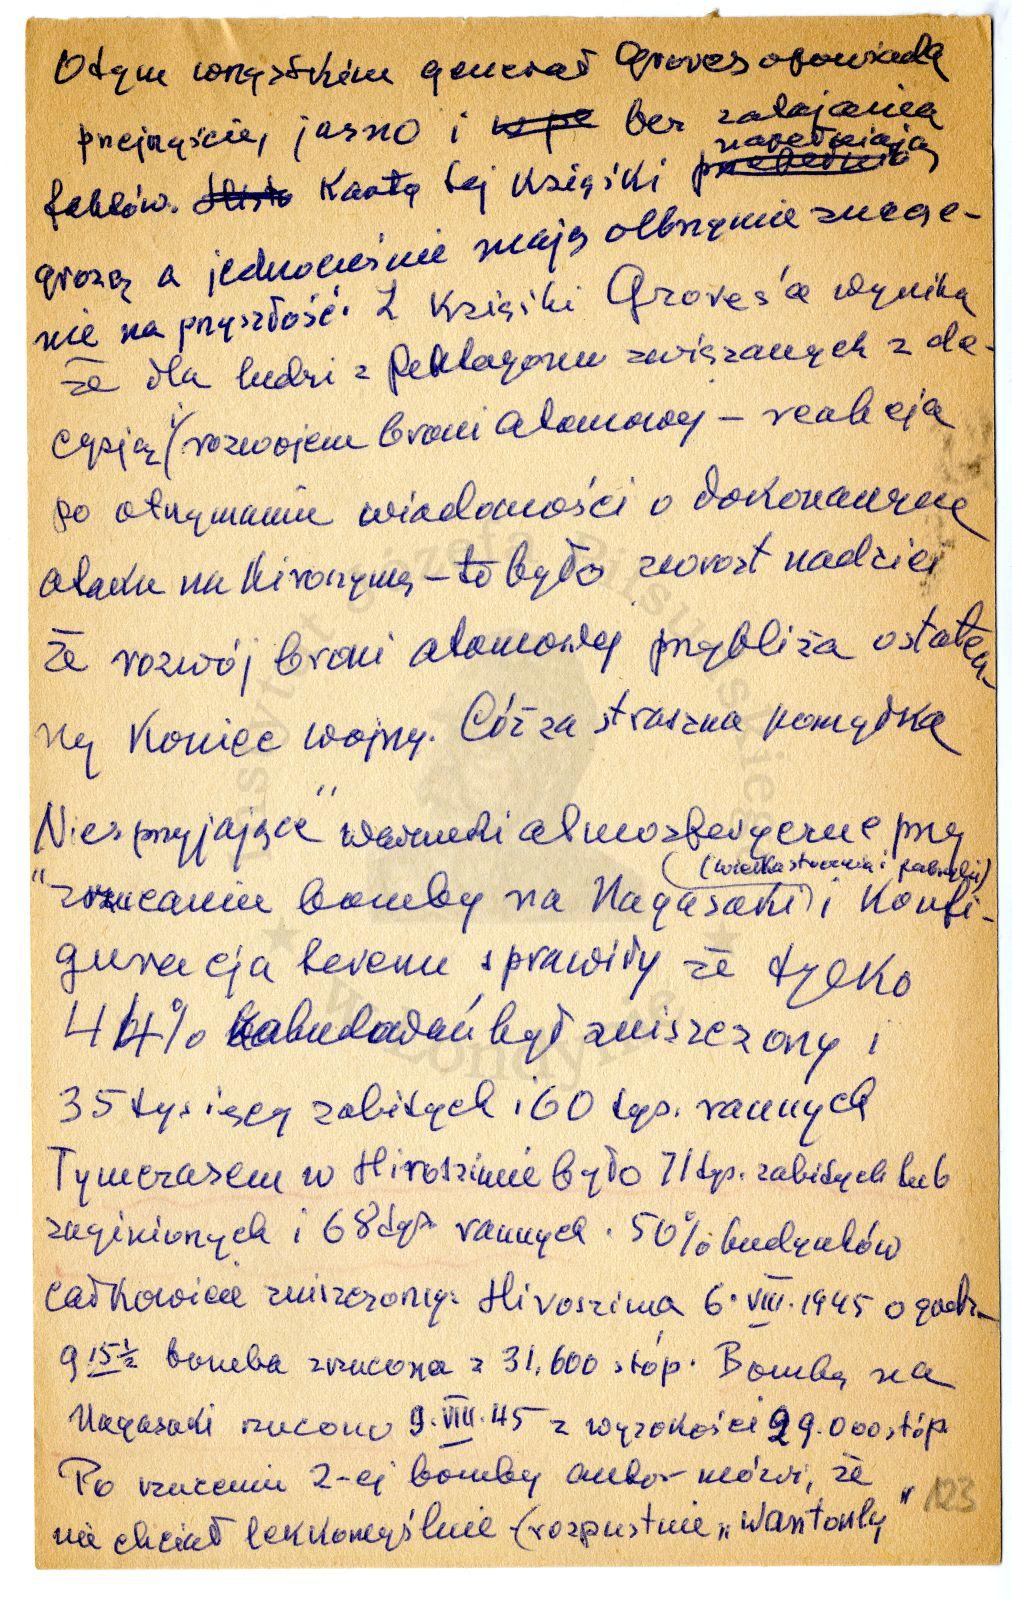 O tym wszystkim generał Groves opowiada
przejrzyście, jasno i w pe bez zatajania
faktów. Karty tej książki napełniają
grozą a jednocześnie mają olbrzymie znacze-
nie na przyszłość. Z książki Groves'a wynika
że dla ludzi z Pentagonu związanych z de-
cyzją i rozwojem broni atomowej – reakcja
po otrzymaniu wiadomości o dokonanym
ataku na Hiroszymę – to było wzrost nadziei
że rozwój broni atomowej przybliża ostatecz-
ny koniec wojny. Cóż za straszna pomyłka
Niesprzyjające" warunki atmosferyczne przy
(wielka stocznia i fabryki)
"zrzucaniu bomby na Nagasaki i konfi-
guracja terenu sprawiły że tylko
44% zabudowań był zniszczony i
35 tysięcy zabitych i 60 tys. rannych
Tymczasem w Hiroszimie było 71 tys. zabitych lub
zaginionych i 68 tys. rannych. 50% budynków
całkowicie zniszczony. Hiroszima 6.VIII.1945 o godz.
9 15½ bomba zrzucona z 31.600 stóp. Bombę na
Nagasaki rzucono 9.VIII.45 z wysokości 29.000 stóp.
Po rzuceniu 2-ej bomby autor mówi, że
nie chciał lekkomyślnie (rozpustnie „wantonly"
123
Instytut Józefa Piłsudskiego
w Londynie